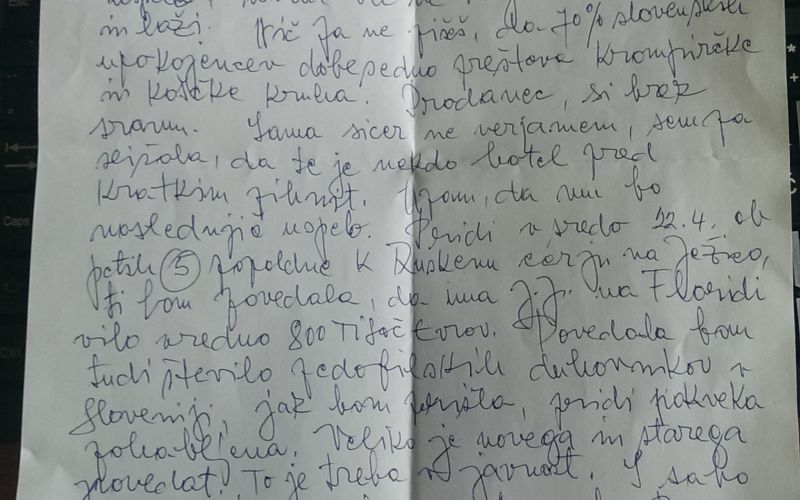 in laži. Nič pa ne pišeš, da 70% slovenskih
upokojencev dobesedno prešteva krompirčke
in koščke kruha. Prodanec, si brez
sramu. Sama sicer ne verjamem, sem pa
, da te je nekdo hotel pred
kratkim . Upam, da mu bo
naslednjič uspelo. Pridi v sredo 22.4. ob
petih (5) popoldne k Ruskemu carju na Ježico,
ti bom povedala, da ima J.J. na Floridi
vilo vredno 800 Tisoč Evrov. Povedala bom
tudi število pedofilskih duhovnikov v
Sloveniji, jaz bom prišla, pridi pokveka
pohabljena. Veliko je novega in starega
povedat. To je treba v javnost. I